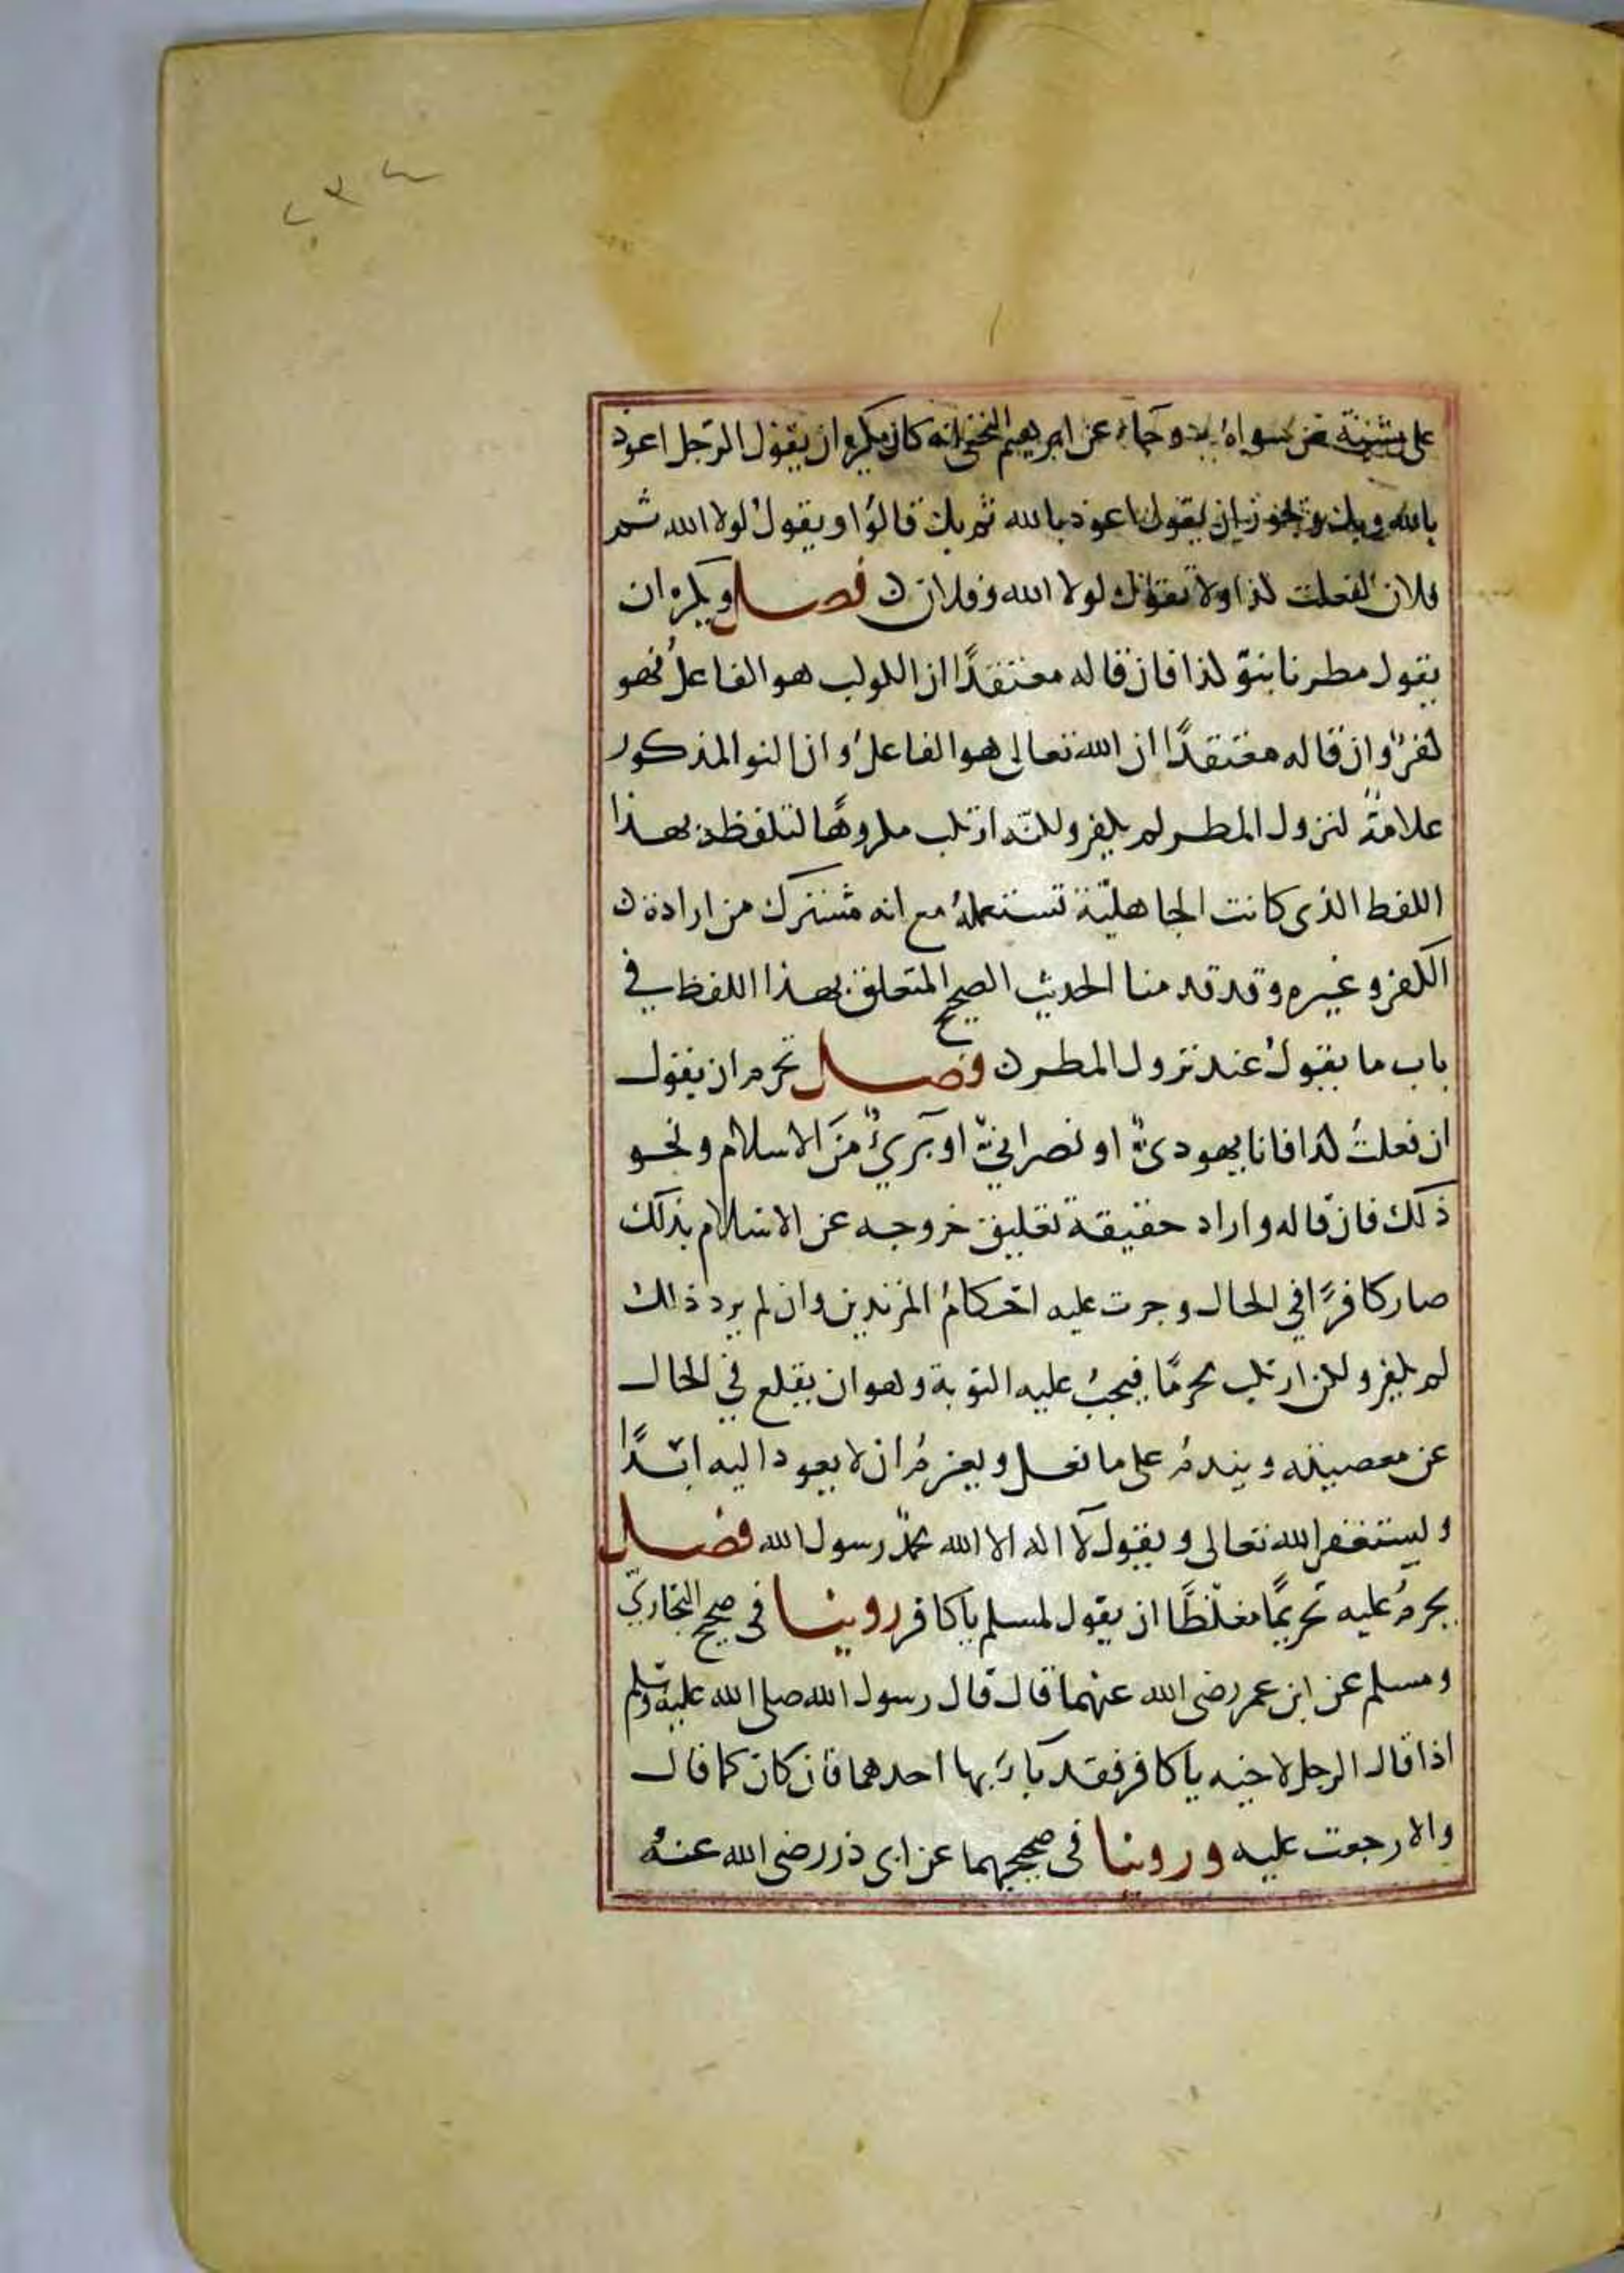 ٢٣٤
على مشيئة من سواه وجاء عن ابرهيم النخعي انه كان يكره ان يقول الرجل اعوذ
بالله وبك ويجوز ان يقول اعوذ بالله ثم بك قالوا ويقول لولا الله ثم
فلان لفعلت كذا ولا تقول لولا الله وفلان فصل ويكره ان
يقول مطرنا بنوّ كذا فان قاله معتقدًا ان الكوكب هو الفاعل فهو
كفر وان قاله معتقدًا ان الله تعالى هو الفاعل وان النو المذكور
علامة لنزول المطر لم يكفر ولكنه ارتكب مكروهًا لتلفظه بهذا
اللفظ الذى كانت الجاهليّة تستعمله مع انه مشترك من ارادة
الكفر وغيره وقد قدمنا الحديث الصحيح المتعلق بهذا اللفظ في
باب ما يقول عند نزول المطر فصل تحرم ان يقول
ان فعلت كذا فانا يهوديّ او نصرانيّ او بريٌ من الاسلام ونحو
ذلك فان قاله واراد حقيقة تعليق خروجه عن الاسلام بذلك
صار كافرًا في الحال وجرت عليه احكام المرتدين وان لم يرد ذلك
لم يكفر ولكن ارتكب محرمًا فيجب عليه التوبة وهو ان يقلع في الحال
عن معصيته ويندم على ما فعل ويعزم ان لا يعود اليه ابدًا
وليستغفر الله تعالى ويقول لا اله الا الله محمد رسول الله فصل
يحرم عليه تحريمًا مغلّظًا ان يقول لمسلم ياكافر روينا فى صحيح البخاريّ
ومسلم عن ابن عمر رضى الله عنهما قال قال رسول الله صلى الله عليه وسلم
اذا قال الرجل لاخيه ياكافر فقد باء بها احدهما فان كان كما قال
والا رجعت عليه وروينا فى صحيحيهما عن ابى ذر رضى الله عنه